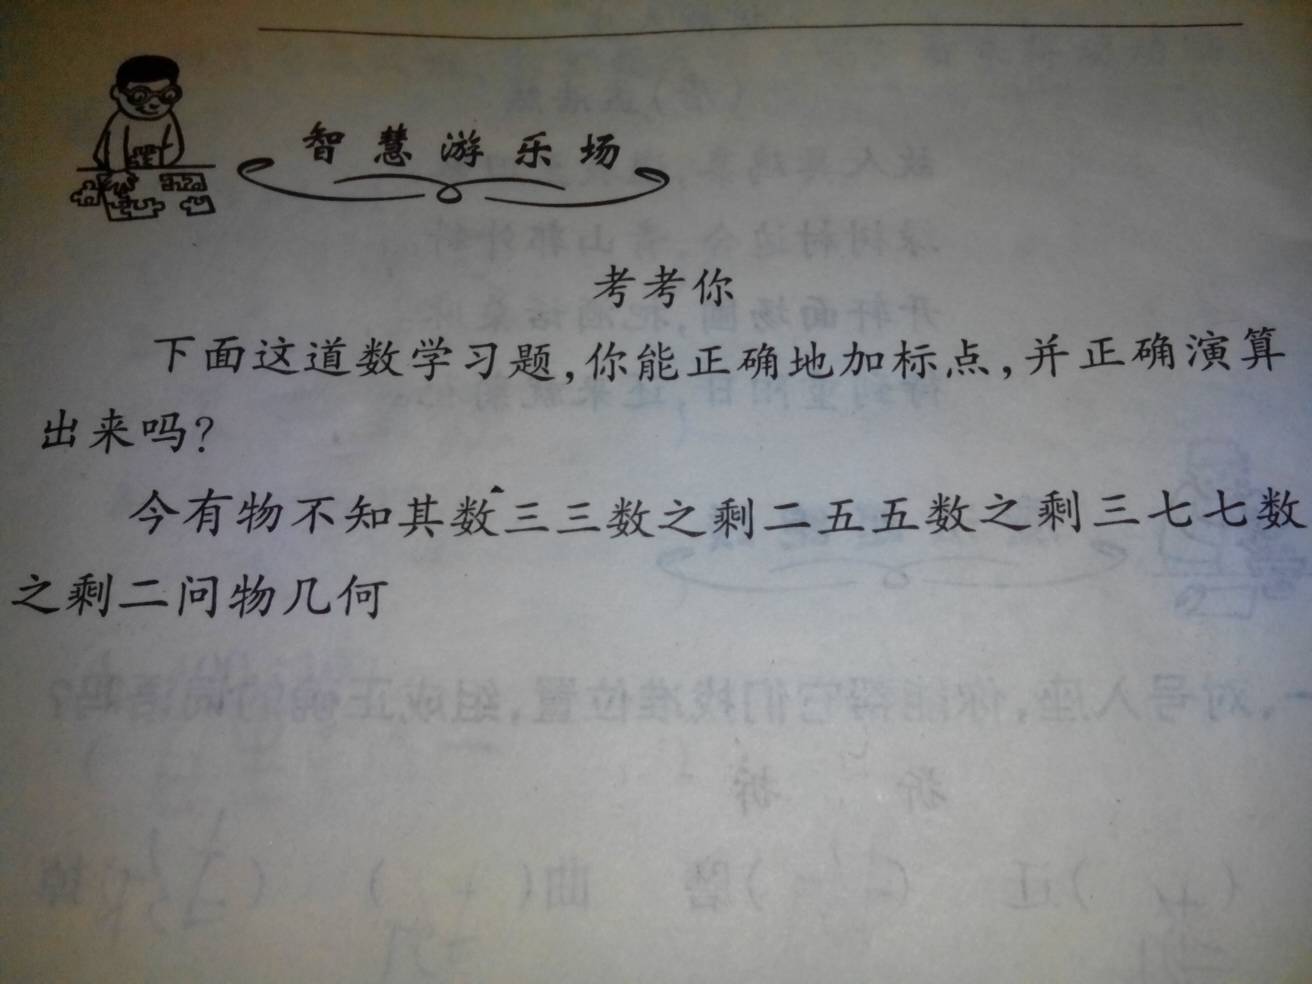 智慧游乐场
考考你
下面这道数学习题,你能正确地加标点,并正确演算
出来吗?
今有物不知其数三三数之剩二五五数之剩三七七数
之剩二问物几何